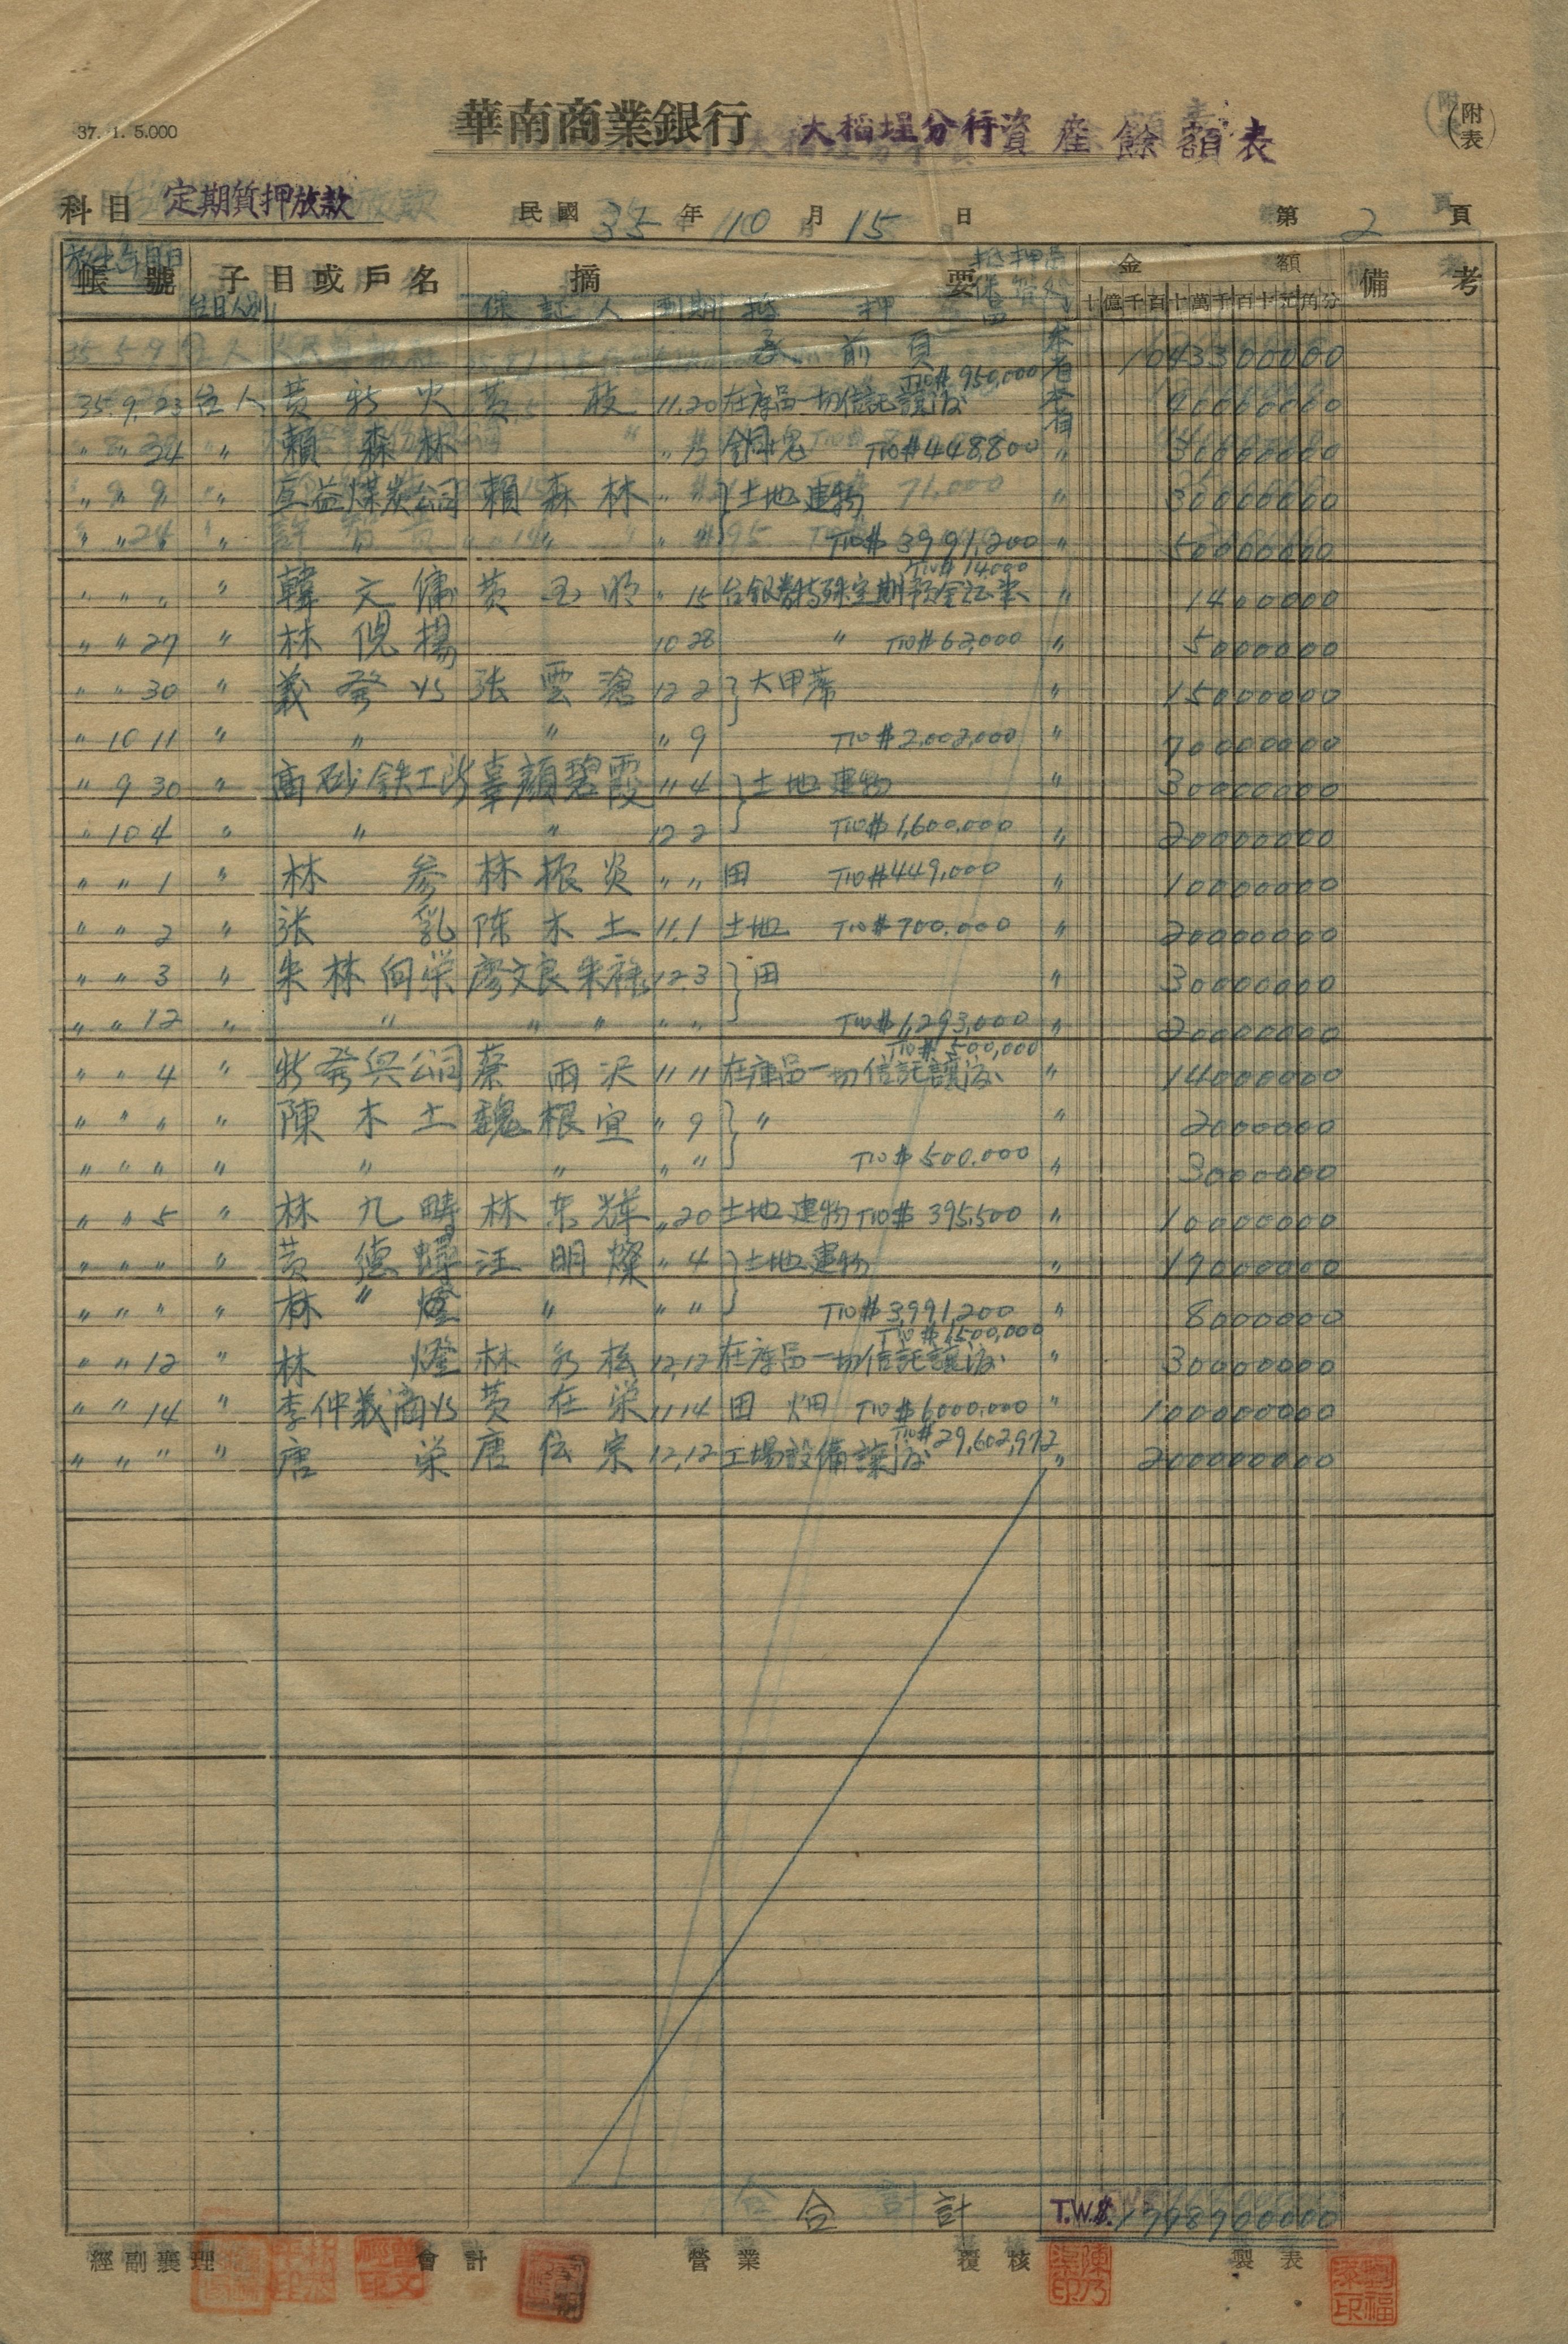 37. 1. 5.000
華南商業銀行 大稻埕分行資產餘額表 (附表)
科目 定期質押放款 民國 35 年 10 月 15 日 第 2 頁
帳號 子目或戶名 摘要 金額 備考
台日人別 保証人 到期 抵押
十億千百十萬千百十元角分
承前頁 本 1043300000
35.9.23 台人 黃新火 黃 11.20 在庫品一切信託讓渡 T10$950,000
〃 〃 24 〃 賴森林 〃 銅塊 T10$448,800 〃
〃 9 9 〃 互益煤炭公司 賴森林 〃 土地建物 〃 30000000
〃 〃 24 〃 〃 T10$3,991,200 〃 50000000
〃 〃 〃 〃 韓文傭 黃玉明 〃 15 台銀券特殊定期預金証書 T10$14,000 〃 1400000
〃 〃 27 〃 林倪楊 10 28 〃 T10$62,000 〃 5000000
〃 〃 30 〃 義發 張雲滄 12 2 大甲蓆 〃 15000000
〃 10 11 〃 〃 〃 〃 9 T10$2,002,000 〃 70000000
〃 9 30 〃 高砂鉄工所 辜顏碧霞 11 4 土地建物 〃 30000000
〃 10 4 〃 〃 〃 12 2 T10$1,600,000 〃 20000000
〃 〃 1 〃 林參 林振炎 〃 〃 田 T10$449,000 〃 10000000
〃 〃 2 〃 張乳 陳木土 11.1 土地 T10$700,000 〃 20000000
〃 〃 3 〃 朱林向栄 廖文良 朱祿 12.3 田 〃 30000000
〃 〃 12 〃 〃 〃 〃 〃 〃 T10$1,293,000 〃 20000000
〃 〃 4 〃 新發興公司 蔡雨沢 11 11 在庫品一切信託讓渡 T10$500,000 〃 14000000
〃 〃 〃 〃 陳木土 魏根宜 〃 9 〃 〃 2000000
〃 〃 〃 〃 〃 〃 〃 〃 T10$500,000 〃 3000000
〃 〃 5 〃 林九疇 林東輝 〃 20 土地建物 T10$395,500 〃 10000000
〃 〃 〃 〃 黃德 汪明燦 〃 4 土地建物 〃 17000000
〃 〃 〃 〃 〃 〃 〃 〃 T10$3,991,200 〃 8000000
〃 〃 12 〃 林燈 林 松 12.12 在庫品一切信託讓渡 T10$1,500,000 〃 30000000
〃 〃 14 〃 李仲義商 黃在栄 11 14 田 畑 T10$6,000,000 〃 100000000
〃 〃 〃 〃 唐栄 唐伝宗 12.12 工場設備讓渡 T10$29,602,972 〃 200000000
合計 T.W.$.
經副襄理 會計 營業 覆核 製表